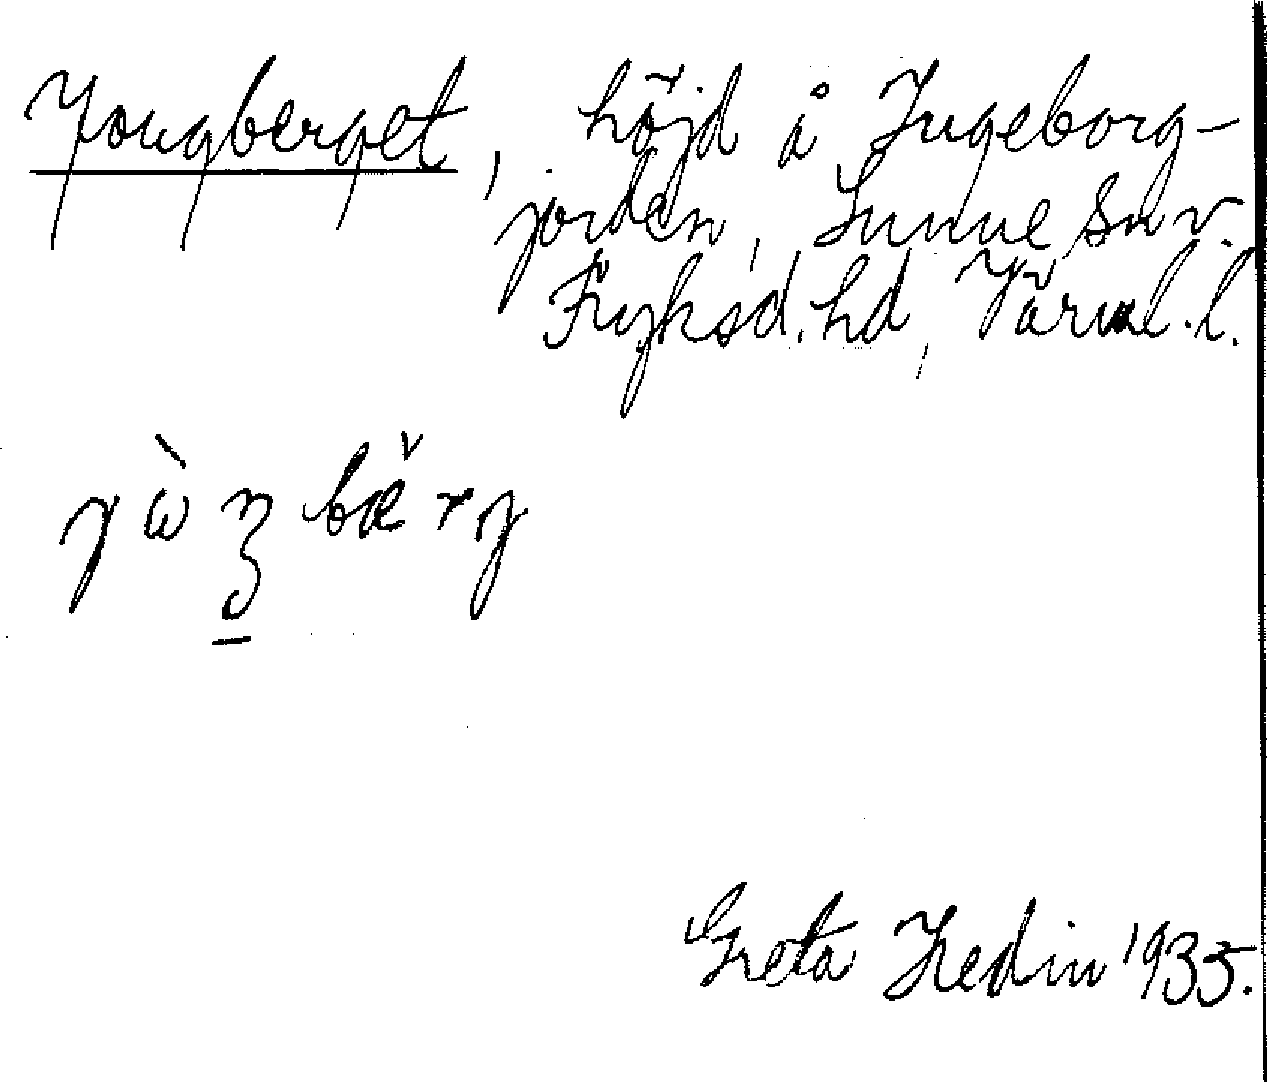 Yongberget, höjd å Ingeborg-
jorden, Sunne snv.
Fryksd. hd, Värml. l.
Greta Hedin 1935.